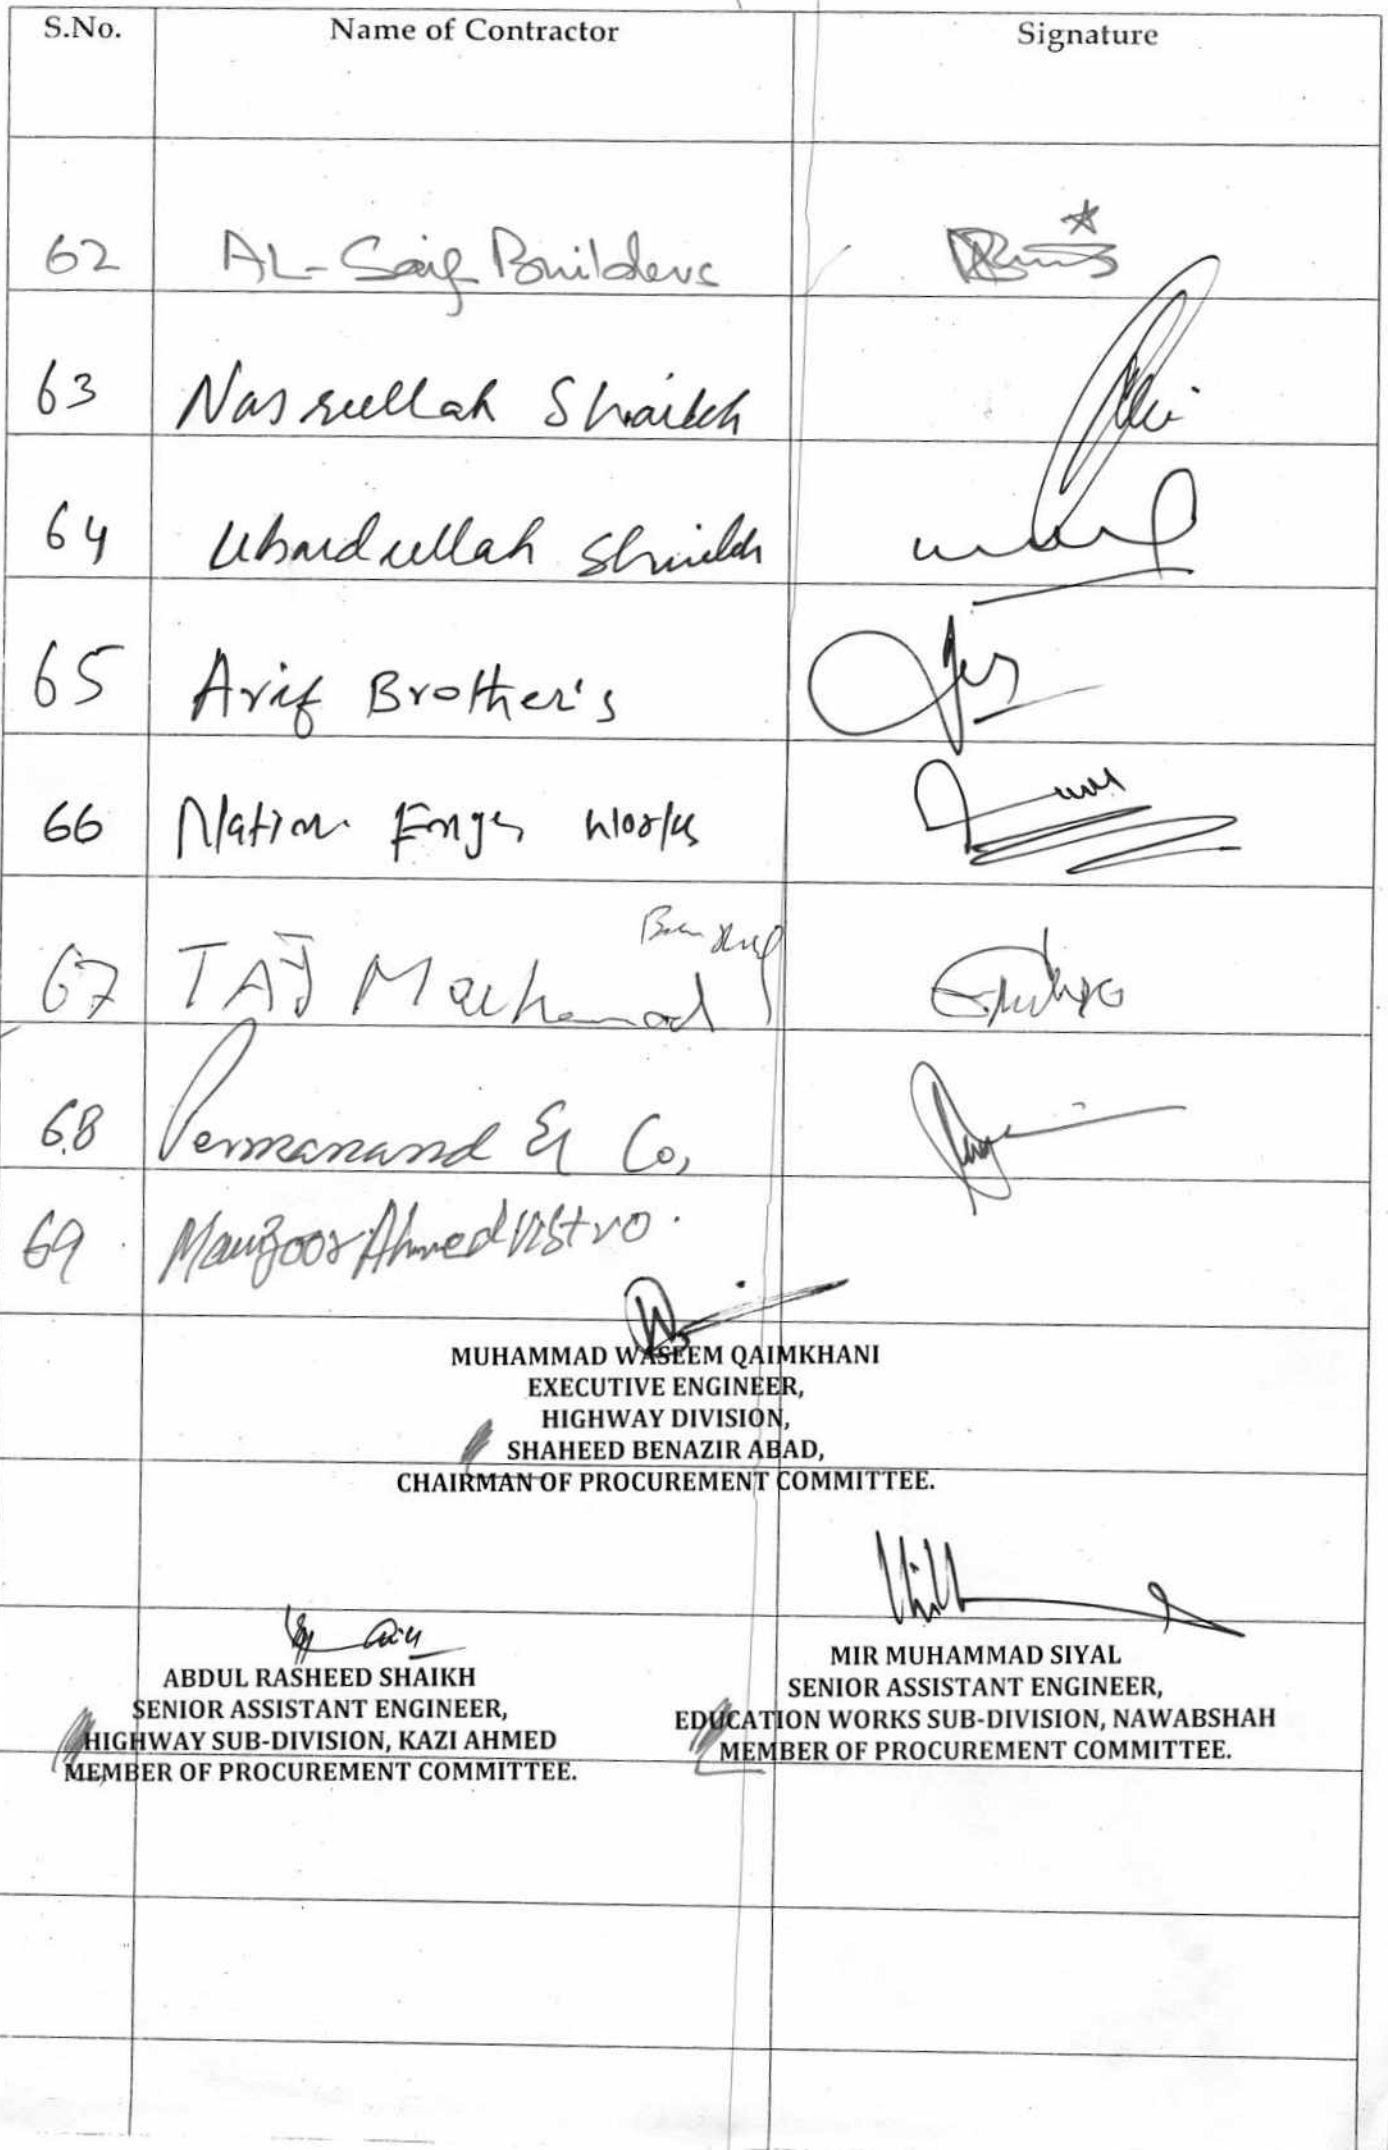 S.No. Name of Contractor Signature
62 AL-Saif Builders
63 Nasrullah Shaikh
64 Ubaidullah Shaikh
65 Arif Brother's
66 Nation Engg Works
67 TAJ Mochamad
68 Permanand & Co,
69 Manzoor Ahmed Vistro.
MUHAMMAD WASEEM QAIMKHANI
EXECUTIVE ENGINEER,
HIGHWAY DIVISION,
SHAHEED BENAZIR ABAD,
CHAIRMAN OF PROCUREMENT COMMITTEE.
ABDUL RASHEED SHAIKH
SENIOR ASSISTANT ENGINEER,
HIGHWAY SUB-DIVISION, KAZI AHMED
MEMBER OF PROCUREMENT COMMITTEE.
MIR MUHAMMAD SIYAL
SENIOR ASSISTANT ENGINEER,
EDUCATION WORKS SUB-DIVISION, NAWABSHAH
MEMBER OF PROCUREMENT COMMITTEE.